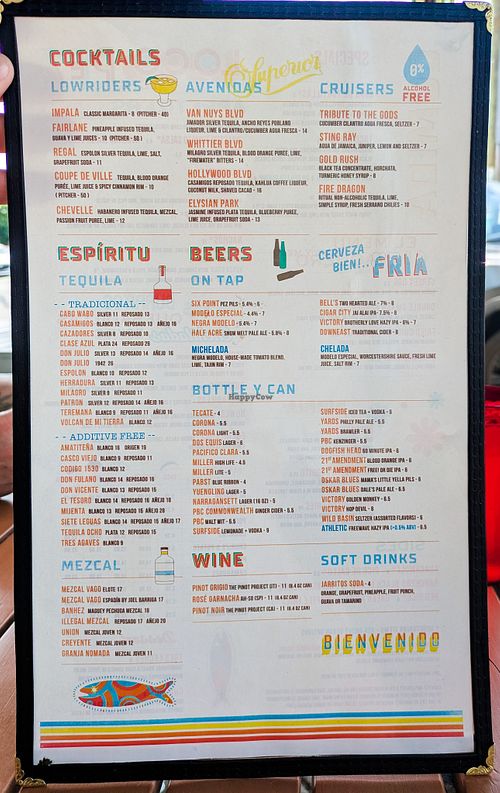 COCKTAILS
LOWRIDERS
IMPALA CLASSIC MARGARITA - 9 (PITCHER - 40)
FAIRLANE PINEAPPLE INFUSED TEQUILA,
GUAVA Y LIME JUICES - 10 (PITCHER - 50)
REGAL ESPOLON SILVER TEQUILA, LIME, SALT,
GRAPEFRUIT SODA - 11
COUPE DE VILLE TEQUILA, BLOOD ORANGE
PURÉE, LIME JUICE & SPICY CINNAMON RIM - 10
(PITCHER - 50)
CHEVELLE HABANERO INFUSED TEQUILA, MEZCAL,
PASSION FRUIT PUREE, LIME - 12
Superior
AVENIDAS
VAN NUYS BLVD
AMADOR SILVER TEQUILA, ANCHO REYES POBLANO
LIQUEUR, LIME & CILANTRO/CUCUMBER AGUA FRESCA - 14
WHITTIER BLVD
MILAGRO SILVER TEQUILA, BLOOD ORANGE PUREE, LIME,
"FIREWATER" BITTERS - 14
HOLLYWOOD BLVD
CASAMIGOS REPOSADO TEQUILA, KAHLUA COFFEE LIQUEUR,
COCONUT MILK, SHAVED CACAO - 16
ELYSIAN PARK
JASMINE INFUSED PLATA TEQUILA, BLUEBERRY PUREE,
LIME JUICE, GRAPEFRUIT SODA - 13
0%
ALCOHOL
FREE
CRUISERS
TRIBUTE TO THE GODS
CUCUMBER CILANTRO AGUA FRESCA, SELTZER - 7
STING RAY
AGUA DE JAMAICA, JUNIPER, LEMON AND SELTZER - 7
GOLD RUSH
BLACK TEA CONCENTRATE, HORCHATA,
TURMERIC HONEY SYRUP - 8
FIRE DRAGON
RITUAL NON-ALCOHOLIC TEQUILA, LIME,
SIMPLE SYRUP, FRESH SERRANO CHILIES - 10
ESPÍRITU
TEQUILA
- - TRADICIONAL - -
CABO WABO SILVER 11 REPOSADO 13
CASAMIGOS BLANCO 12 REPOSADO 13 AÑEJO 16
CAZADORES SILVER 8 REPOSADO 10
CLASE AZUL PLATA 24 REPOSADO 28
DON JULIO SILVER 13 REPOSADO 14 AÑEJO 16
DON JULIO 1942 28
ESPOLON BLANCO 10 REPOSADO 12
HERRADURA SILVER 11 REPOSADO 13
MILAGRO SILVER 9 REPOSADO 11
PATRON SILVER 12 REPOSADO 14 AÑEJO 16
TEREMANA BLANCO 9 REPOSADO 11 AÑEJO 13
VOLCAN DE MI TIERRA BLANCO 12
- - ADDITIVE FREE - -
AMATITEÑA BLANCO 16 ORIGEN 19
CASCO VIEJO BLANCO 9 REPOSADO 11
CODIGO 1530 BLANCO 12
DON FULANO BLANCO 14 REPOSADO 16
DON VICENTE BLANCO 13 REPOSADO 15
EL TESORO BLANCO 14 REPOSADO 16 AÑEJO 18
MIJENTA BLANCO 13 REPOSADO 15 AÑEJO 28
SIETE LEGUAS BLANCO 14 REPOSADO 15 AÑEJO 17
TEQUILA OCHO PLATA 12 REPOSADO 15
TRES AGAVES BLANCO 9
MEZCAL
MEZCAL VAGO ELOTE 17
MEZCAL VAGO ESPADÍN BY JOEL BARRIGA 17
BANHEZ MAGUEY PECHUGA MEZCAL 18
ILLEGAL MEZCAL REPOSADO 17 AÑEJO 20
UNION MEZCAL JOVEN 12
CREYENTE MEZCAL JOVEN 12
GRANJA NOMADA MEZCAL JOVEN 11
BEERS
CERVEZA
BIEN!..
FRIA
ON TAP
SIX POINT PEZ PILS - 5.4% - 6
MODELO ESPECIAL - 4.4% - 7
NEGRA MODELO - 5.4% - 7
HALF ACRE SNOW WIT PALE ALE - 5.8% - 8
MICHELADA
NEGRA MODELO, HOUSE-MADE TOMATO BLEND,
LIME, TAJIN RIM - 7
BELL'S TWO HEARTED ALE - 7% - 8
CIGAR CITY JAI ALAI IPA 7.5% - 8
VICTORY BROTHERLY LOVE HAZY IPA - 6% - 7
DOWNEAST TRADITIONAL CIDER - 8
CHELADA
MODELO ESPECIAL, WORCESTERSHIRE SAUCE, FRESH LIME
JUICE, SALT RIM - 7
BOTTLE Y CAN
HappyCow
TECATE - 4
CORONA - 5.5
CORONA LIGHT - 5.5
DOS EQUIS LAGER - 6
PACIFICO CLARA - 5.5
MILLER HIGH LIFE - 4.5
MILLER LITE - 5
PABST BLUE RIBBON - 4
YUENGLING LAGER - 5
NARRAGANSETT LAGER (16 OZ) - 5
PBC COMMONWEALTH GINGER CIDER - 5.5
PBC WALT WIT - 5.5
SURFSIDE LEMONADE + VODKA - 9
SURFSIDE ICED TEA + VODKA - 9
YARDS PHILLY PALE ALE - 5.5
YARDS BRAWLER - 5.5
PBC KENZINGER - 5.5
DOGFISH HEAD 60 MINUTE IPA - 6
21ST AMENDMENT BLOOD ORANGE IPA - 6
21ST AMENDMENT FREE! OR DIE IPA - 6
OSKAR BLUES MAMA'S LITTLE YELLA PILS - 6
OSKAR BLUES DALE'S PALE ALE - 6.5
VICTORY GOLDEN MONKEY - 6.5
VICTORY HOP DEVIL - 6
WILD BASIN SELTZER (ASSORTED FLAVORS) - 6
ATHLETIC FREEWAVE HAZY IPA (<0.5% ABV) - 6.5
WINE
PINOT GRIGIO THE PINOT PROJECT (IT) - 11 (8.4 OZ CAN)
ROSÉ GARNACHA AH-SO (SP) - 11 (8.4 OZ CAN)
PINOT NOIR THE PINOT PROJECT (CA) - 11 (8.4 OZ CAN)
SOFT DRINKS
JARRITOS SODA - 4
ORANGE, GRAPEFRUIT, PINEAPPLE, FRUIT PUNCH,
GUAVA OR TAMARIND
BIENVENIDO